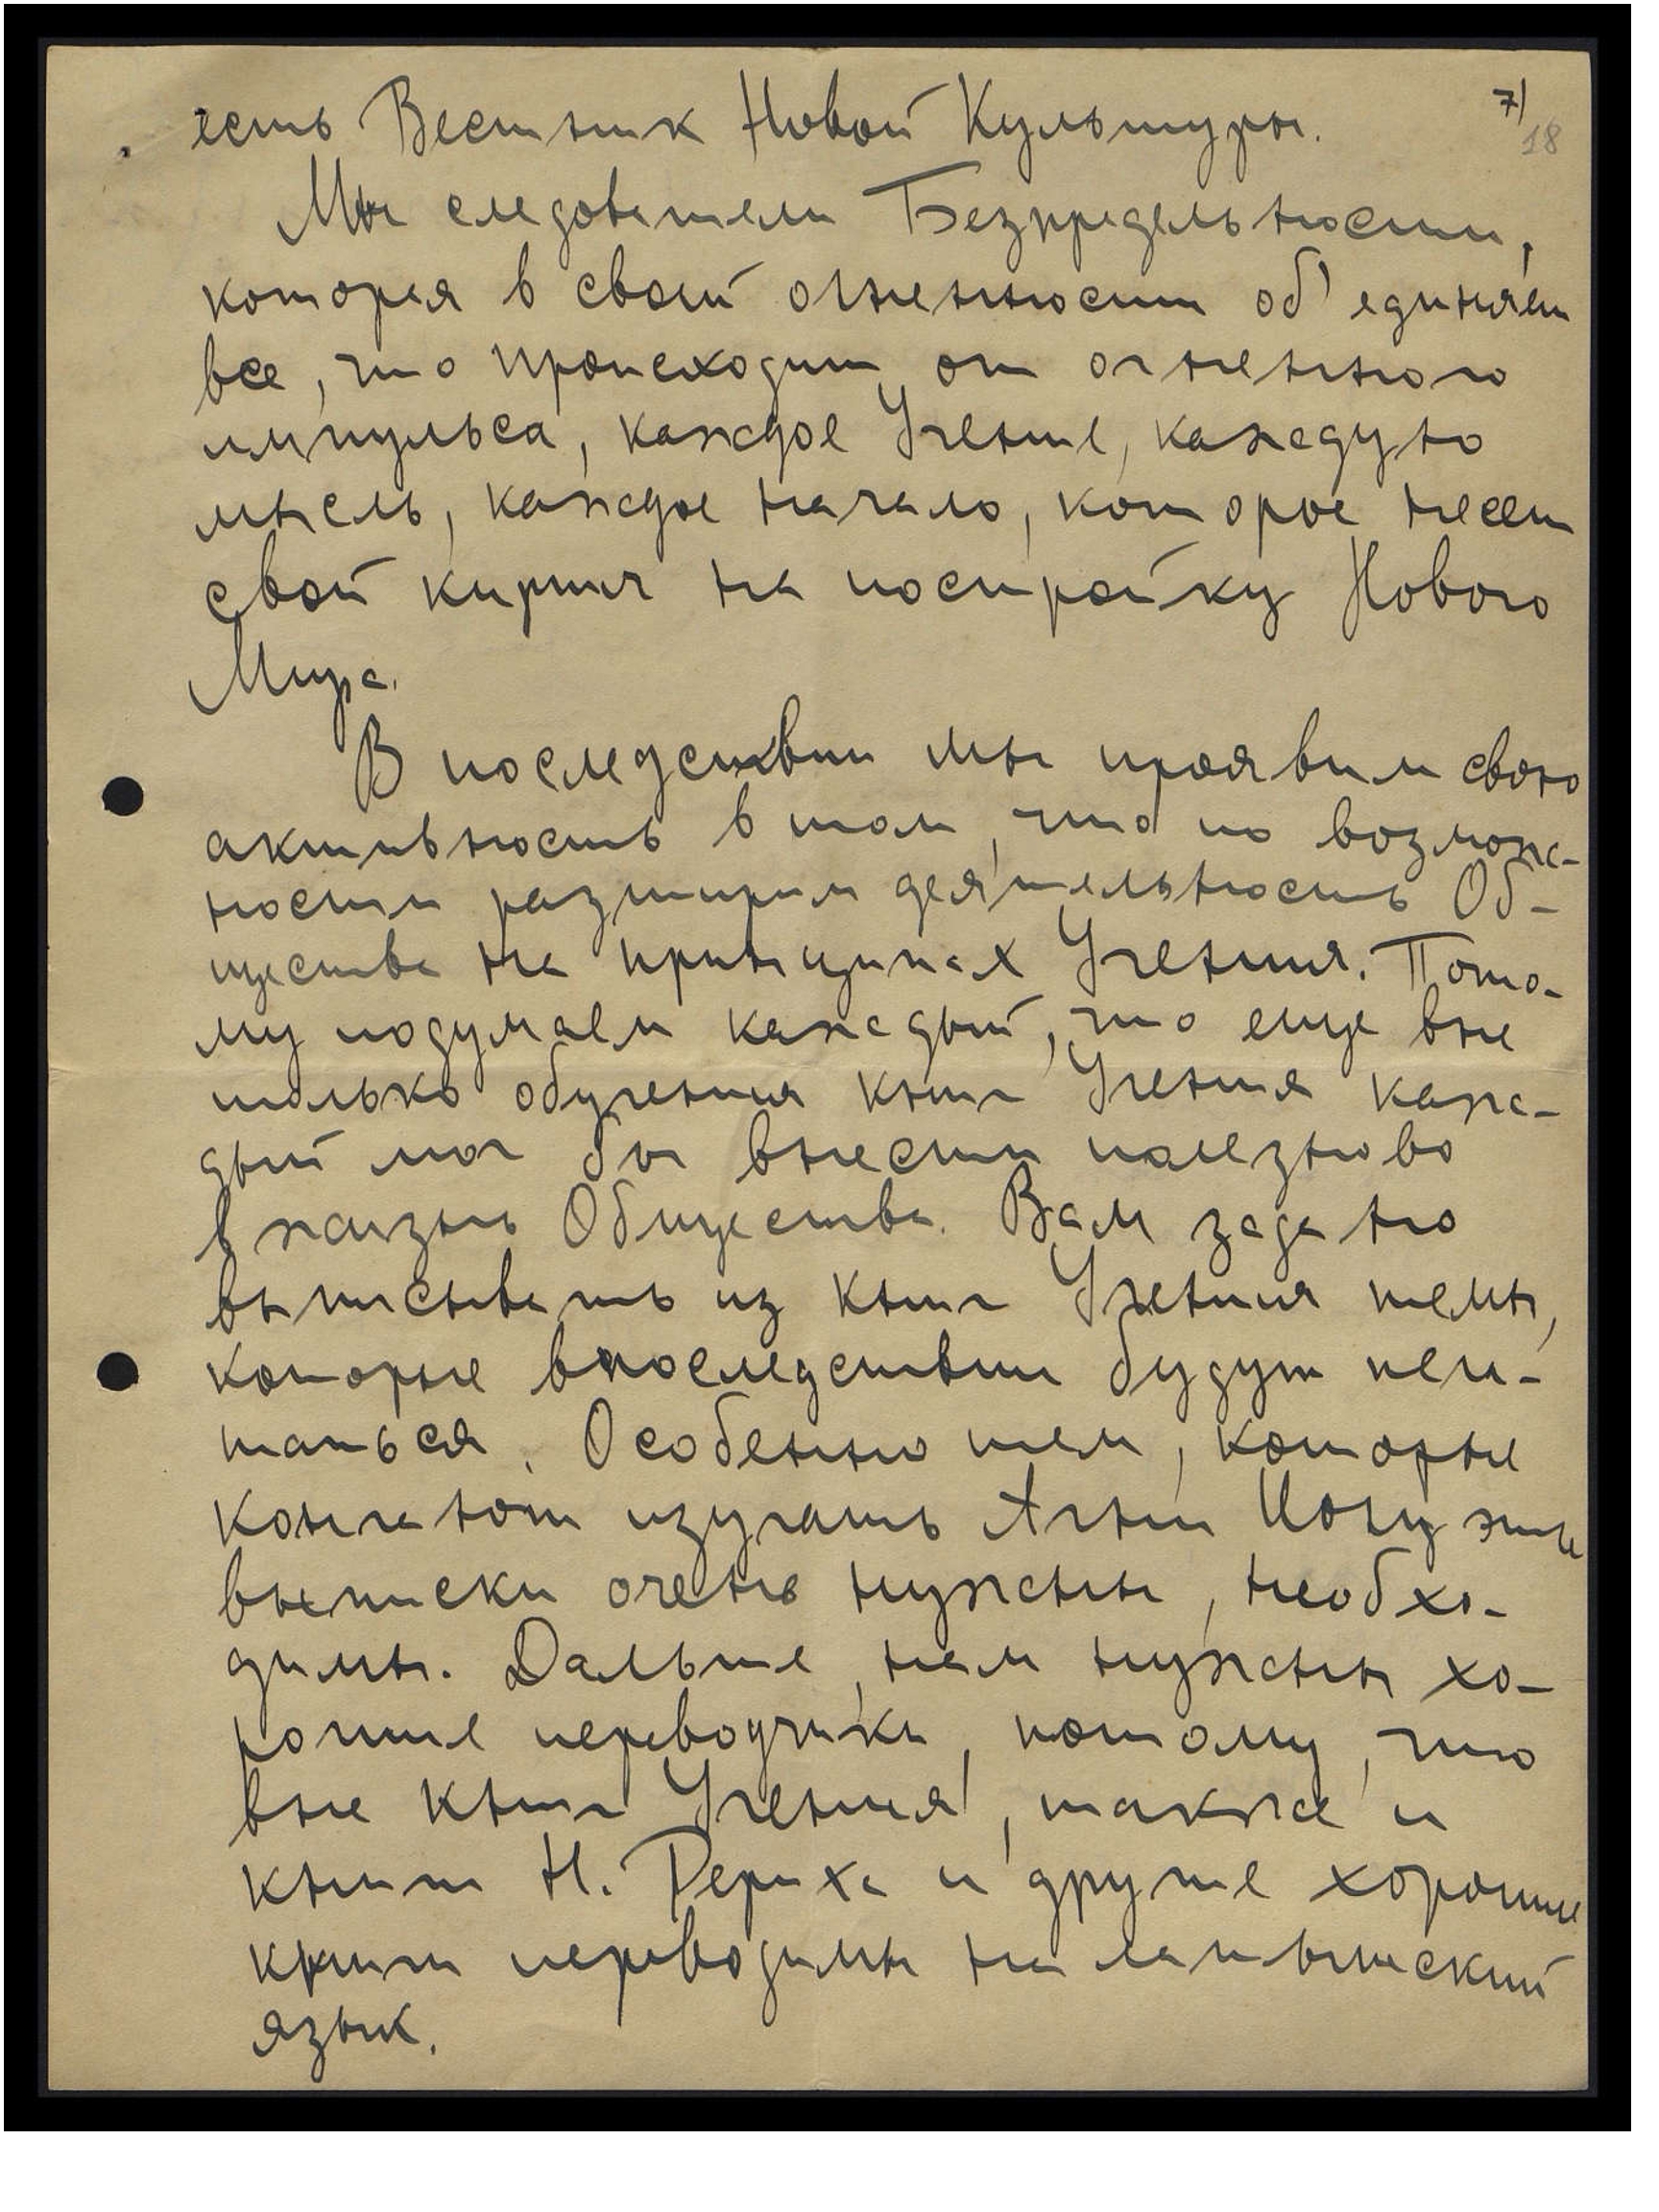 есть Вестник Новой Культуры.
7)
18
Мы следователи Безпредельности,
которая в своей огненности об'единяет
все, что происходит от огненного
импульса, каждое Учение, каждую
мысль, каждое начало, которое несет
свой кирпич на постройку Нового
Мира.
В последствии мы проявим свою
активность в том, что по возмож-
ности разширим деятельность Об-
щества на принципах Учения. Пото-
му подумаем каждый, что еще вне
только обучения книг Учения каж-
дый мог бы внести полезново
в жизнь Общества. Вам задано
выписывать из книг Учения темы,
которые впоследствии будут печа-
таться. Особенно тем, которые
кончают изучать Агни Йогу эти
выписки очень нужны, необхо-
димы. Дальше, нам нужны хо-
рошие переводчики, потому, что
вне книг Учения, также и
книги Н. Рериха и другие хорошие
книги переводимы на латышский
язык.